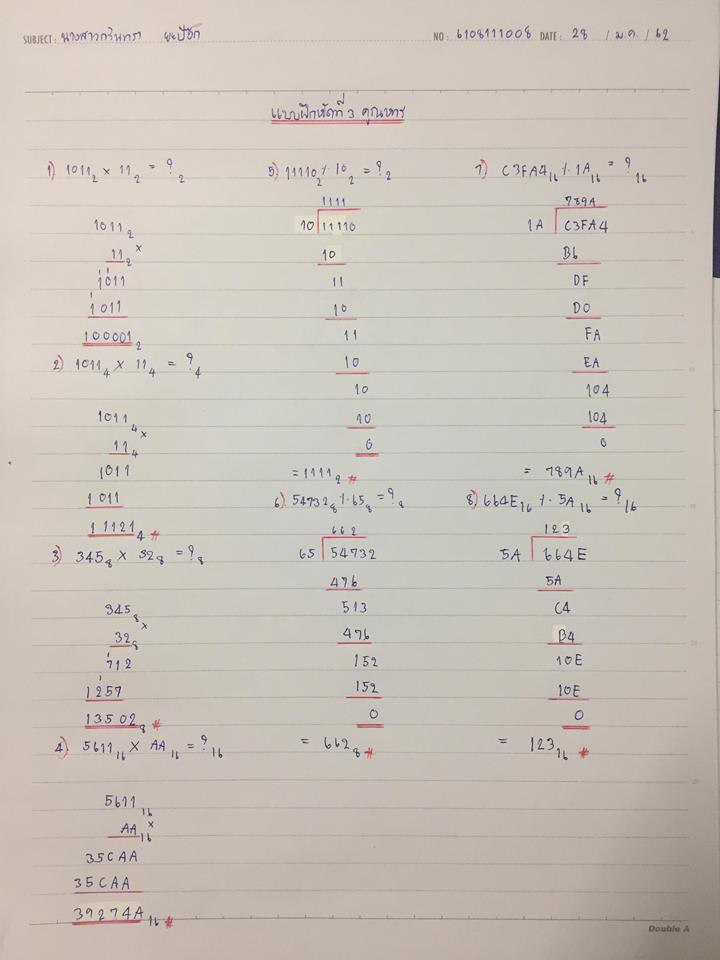 SUBJECT: นางสาวกรินทรา ยะปัอก NO: 6108111008 DATE: 28 / ม.ค. / 62
แบบฝึกหัดที่ 3 คูณหาร
1) 1011₂ × 11₂ = ?₂
1011₂
11₂ ×
1011
1011
100001₂
2) 1011₄ × 11₄ = ?₄
1011₄
11₄ ×
1011
1011
11121₄ #
3) 345₈ × 32₈ = ?₈
345₈
32₈ ×
712
1257
13502₈ #
4) 5611₁₆ × AA₁₆ = ?₁₆
5611₁₆
AA₁₆ ×
35CAA
35CAA
39274A₁₆ #
5) 11110₂ % 10₂ = ?₂
1111
10 11110
10
11
10
11
10
10
10
0
= 1111₂ #
6) 54732₈ % 65₈ = ?₈
662
65 54732
476
513
476
152
152
0
= 662₈ #
7) C3FA4₁₆ % 1A₁₆ = ?₁₆
789A
1A C3FA4
B6
DF
D0
FA
EA
104
104
0
= 789A₁₆ #
8) 664E₁₆ % 5A₁₆ = ?₁₆
123
5A 664E
5A
C4
B4
10E
10E
0
= 123₁₆ #
Double A